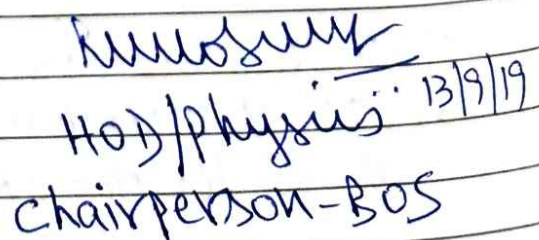 HOD/Physics. 13/9/19
Chairperson-BOS